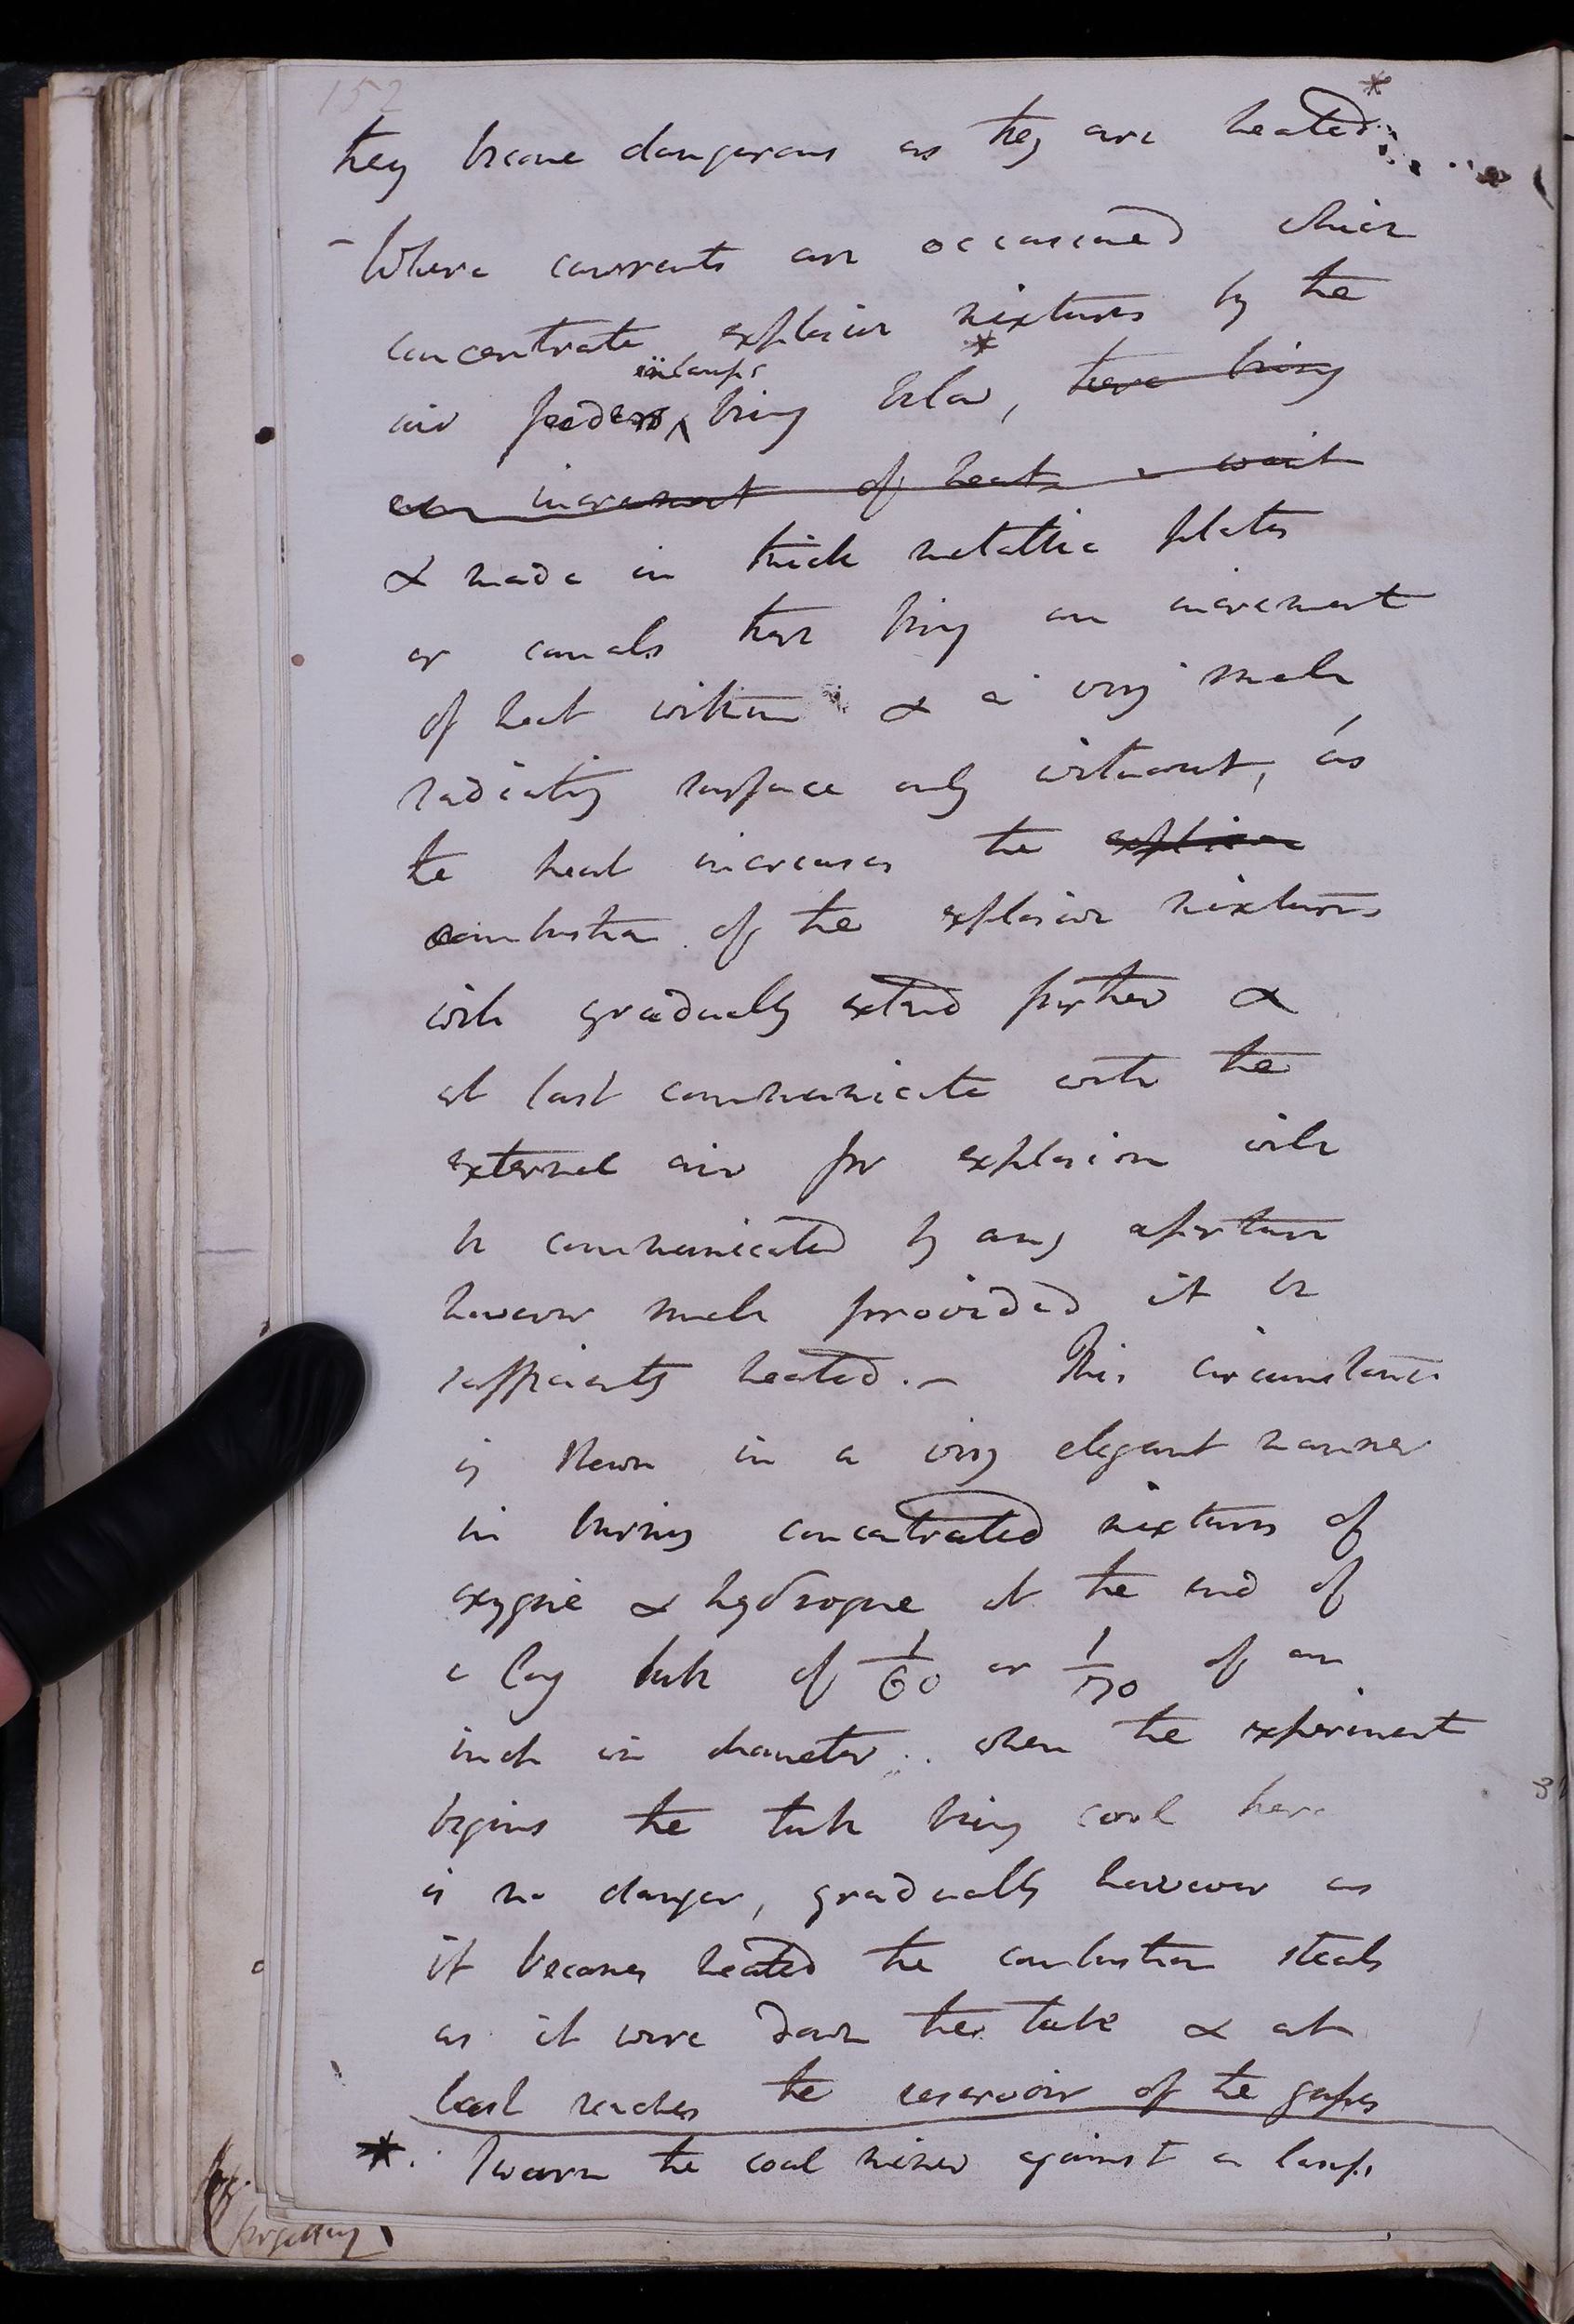 152
they become dangerous as they are heated *
- Where currents are occasioned which
concentrate explosive mixtures by the
in lamps *
air feeders ^ being below, there being
an increment of heat
& made in thick metallic plates
or canals there being an increment
of heat within & a very small
radiating surface only without, as
the heat increases the explosion
combustion of the explosive mixtures
will gradually extend further &
at last communicate with the
external air for explosion will
be communicated by any aperture
however small provided it be
sufficiently heated. - This circumstance
is shewn in a very elegant manner
in burning concentrated mixtures of
oxygene & hydrogene at the end of
a long tube of 1/60 or 1/70 of an
inch in diameter. when the experiment
begins the tube being cool there
is no danger, gradually however as
it becomes heated the combustion steals
as it were down the tube & at
last reaches the reservoir of the gases
*. I warn the coal miner against a lamp
forgetting